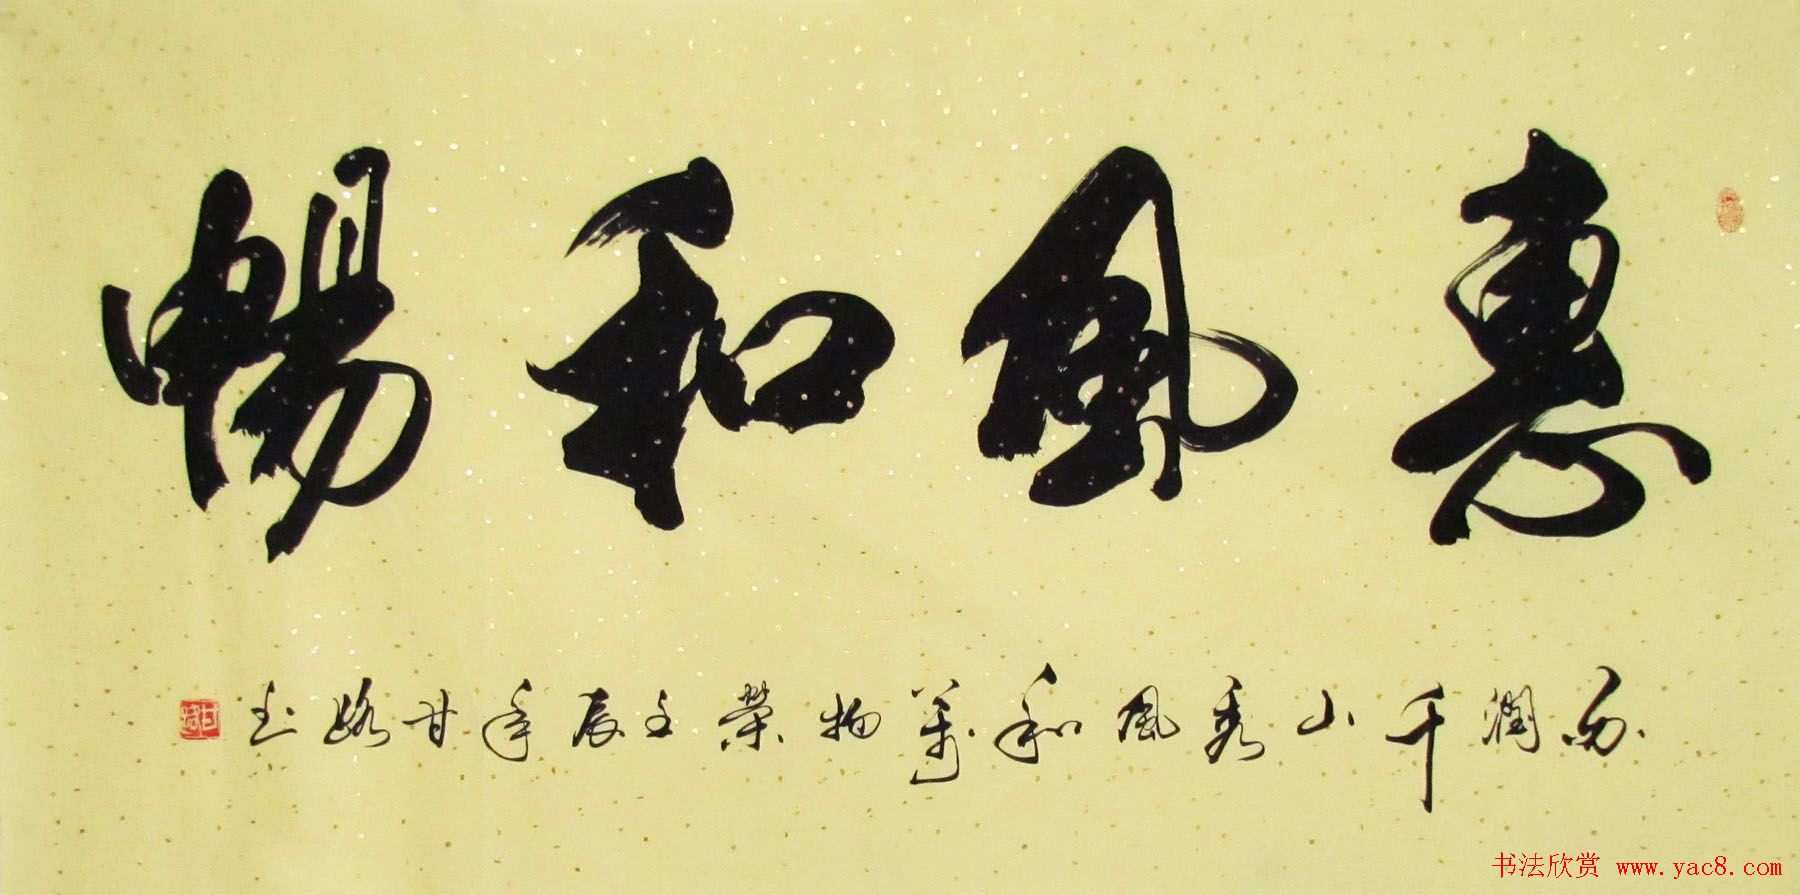 惠風和暢
雨潤千山秀風和萬物榮壬辰年甘路書
书法欣赏 www.yac8.com